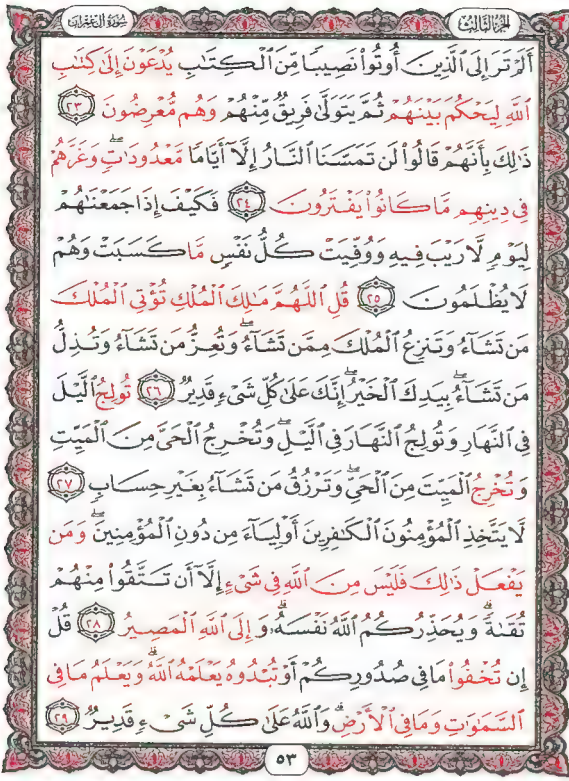 سُورَةُ آلِ عِمْرَان
الجُزْءُ الثَّالِث
أَلَمْ تَرَ إِلَى ٱلَّذِينَ أُوتُواْ نَصِيبًا مِّنَ ٱلْكِتَٰبِ يُدْعَوْنَ إِلَىٰ كِتَٰبِ
ٱللَّهِ لِيَحْكُمَ بَيْنَهُمْ ثُمَّ يَتَوَلَّىٰ فَرِيقٌ مِّنْهُمْ وَهُم مُّعْرِضُونَ ٢٣
ذَٰلِكَ بِأَنَّهُمْ قَالُواْ لَن تَمَسَّنَا ٱلنَّارُ إِلَّآ أَيَّامًا مَّعْدُودَٰتٍۖ وَغَرَّهُمْ
فِى دِينِهِم مَّا كَانُواْ يَفْتَرُونَ ٢٤ فَكَيْفَ إِذَا جَمَعْنَٰهُمْ
لِيَوْمٍ لَّا رَيْبَ فِيهِ وَوُفِّيَتْ كُلُّ نَفْسٍ مَّا كَسَبَتْ وَهُمْ
لَا يُظْلَمُونَ ٢٥ قُلِ ٱللَّهُمَّ مَٰلِكَ ٱلْمُلْكِ تُؤْتِى ٱلْمُلْكَ
مَن تَشَآءُ وَتَنزِعُ ٱلْمُلْكَ مِمَّن تَشَآءُۖ وَتُعِزُّ مَن تَشَآءُ وَتُذِلُّ
مَن تَشَآءُۖ بِيَدِكَ ٱلْخَيْرُۖ إِنَّكَ عَلَىٰ كُلِّ شَىْءٍ قَدِيرٌ ٢٦ تُولِجُ ٱلَّيْلَ
فِى ٱلنَّهَارِ وَتُولِجُ ٱلنَّهَارَ فِى ٱلَّيْلِۖ وَتُخْرِجُ ٱلْحَىَّ مِنَ ٱلْمَيِّتِ
وَتُخْرِجُ ٱلْمَيِّتَ مِنَ ٱلْحَىِّۖ وَتَرْزُقُ مَن تَشَآءُ بِغَيْرِ حِسَابٍ ٢٧
لَّا يَتَّخِذِ ٱلْمُؤْمِنُونَ ٱلْكَٰفِرِينَ أَوْلِيَآءَ مِن دُونِ ٱلْمُؤْمِنِينَۖ وَمَن
يَفْعَلْ ذَٰلِكَ فَلَيْسَ مِنَ ٱللَّهِ فِى شَىْءٍ إِلَّآ أَن تَتَّقُواْ مِنْهُمْ
تُقَىٰةًۗ وَيُحَذِّرُكُمُ ٱللَّهُ نَفْسَهُۥۗ وَإِلَى ٱللَّهِ ٱلْمَصِيرُ ٢٨ قُلْ
إِن تُخْفُواْ مَا فِى صُدُورِكُمْ أَوْ تُبْدُوهُ يَعْلَمْهُ ٱللَّهُۗ وَيَعْلَمُ مَا فِى
ٱلسَّمَٰوَٰتِ وَمَا فِى ٱلْأَرْضِۗ وَٱللَّهُ عَلَىٰ كُلِّ شَىْءٍ قَدِيرٌ ٢٩
٥٣